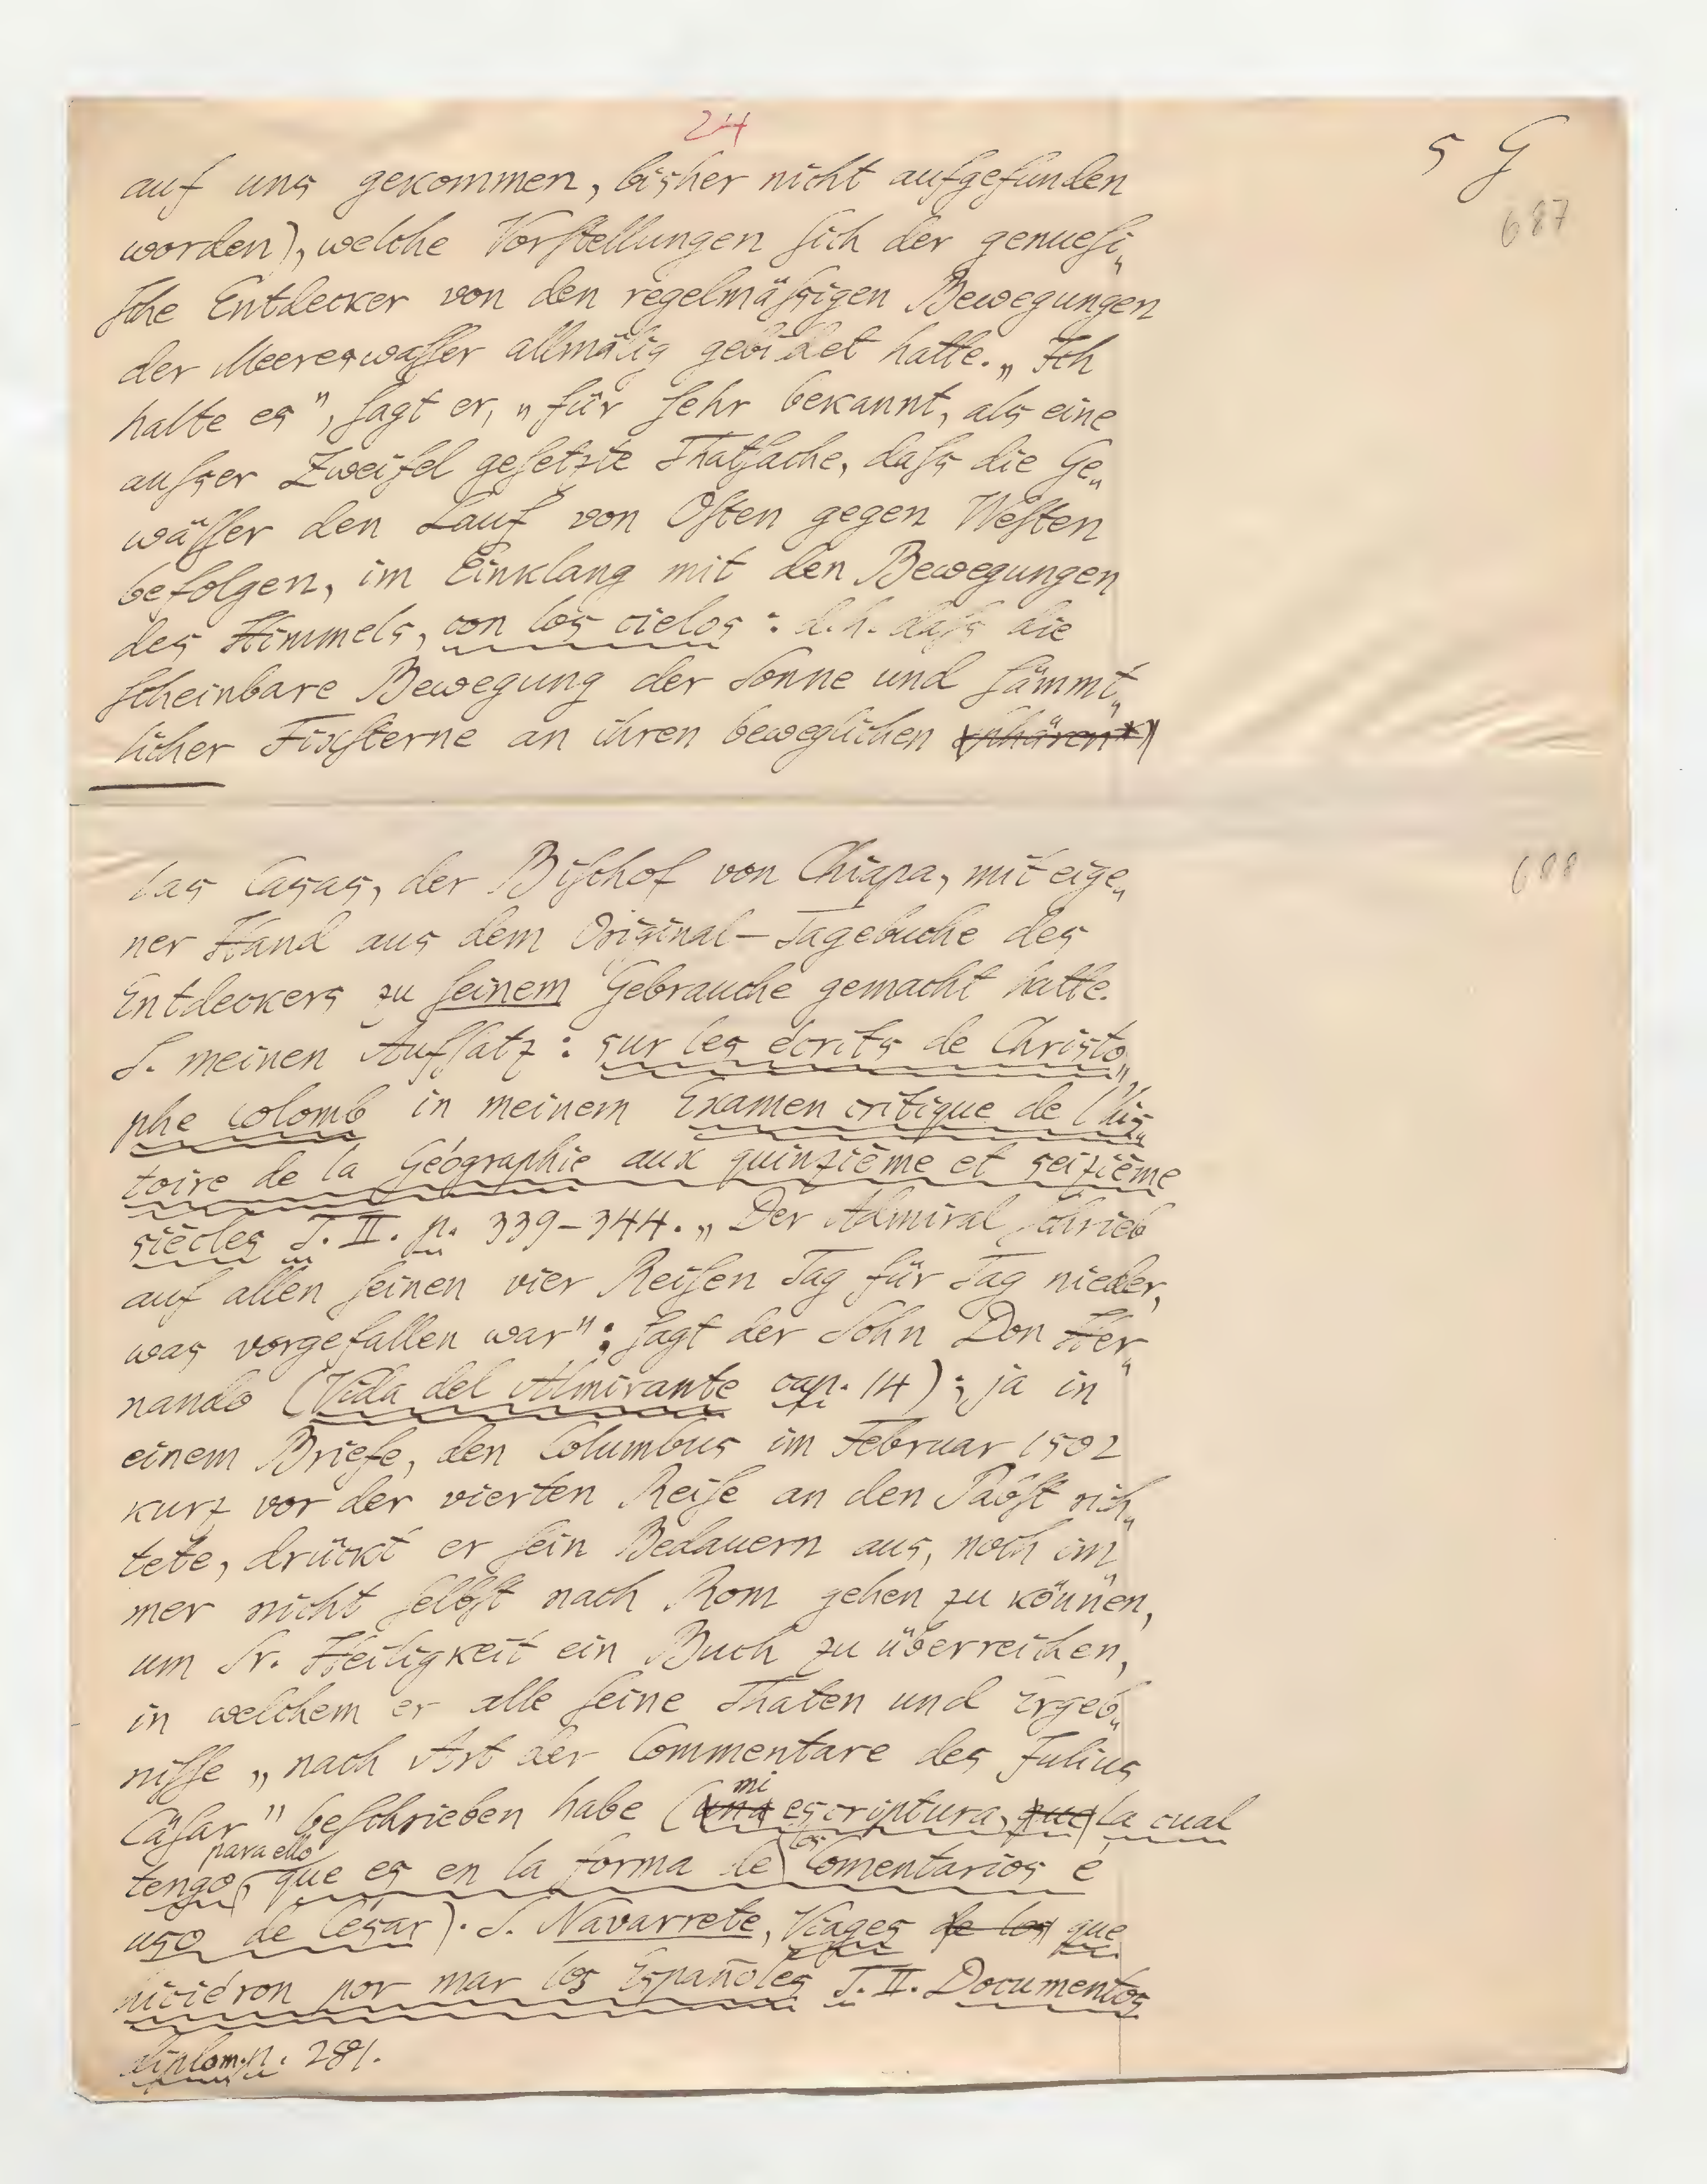 24
5 G
687
auf uns gekommen, bisher nicht aufgefunden
worden), welche Vorstellungen sich der genuesi„
sche Entdecker von den regelmässigen Bewegungen
der Meereswasser allmälig gebildet hatte. „Ich
halte es", sagt er, „für sehr bekannt, als eine
ausser Zweifel gesetzte Thatsache, dass die Ge„
wässer den Lauf von Osten gegen Westen
befolgen, im Einklang mit den Bewegungen
des Himmels, con los cielos: d. h. dass die
scheinbare Bewegung der Sonne und sämmt„
licher Fixsterne an ihren beweglichen sphären*)
688
las Casas, der Bischof von Chiapa, mit eige„
ner Hand aus dem Original-Tagebuche des
Entdeckers zu seinem Gebrauche gemacht hatte.
S. meinen Aufsatz: sur les écrits de Christo„
phe Colomb in meinem Examen critique de l'his„
toire de la Géographie aux quinzième et seizième
siècles T. II. p. 339-344. „Der Admiral schrieb
auf allen seinen vier Reisen Tag für Tag nieder,
was vorgefallen war"; sagt der Sohn Don Her„
nando (Vida del Almirante cap. 14); ja in
einem Briefe, den Columbus im Februar 1502
kurz vor der vierten Reise an den Pabst rich„
tete, drückt er sein Bedauern aus, noch im„
mer nicht selbst nach Rom gehen zu können,
um Sr. Heiligkeit ein Buch zu überreichen,
in welchem er alle seine Thaten und Ergeb„
nisse „nach Art der Commentare des Julius
Cäsar" beschrieben habe (una mi escriptura, que la cual
tengo para ello, que es en la forma de los Comentarios é
uso de César). S. Navarrete, Viages de los que
hiciéron por mar los Españoles T. II. Documentos
diplom. p. 281.